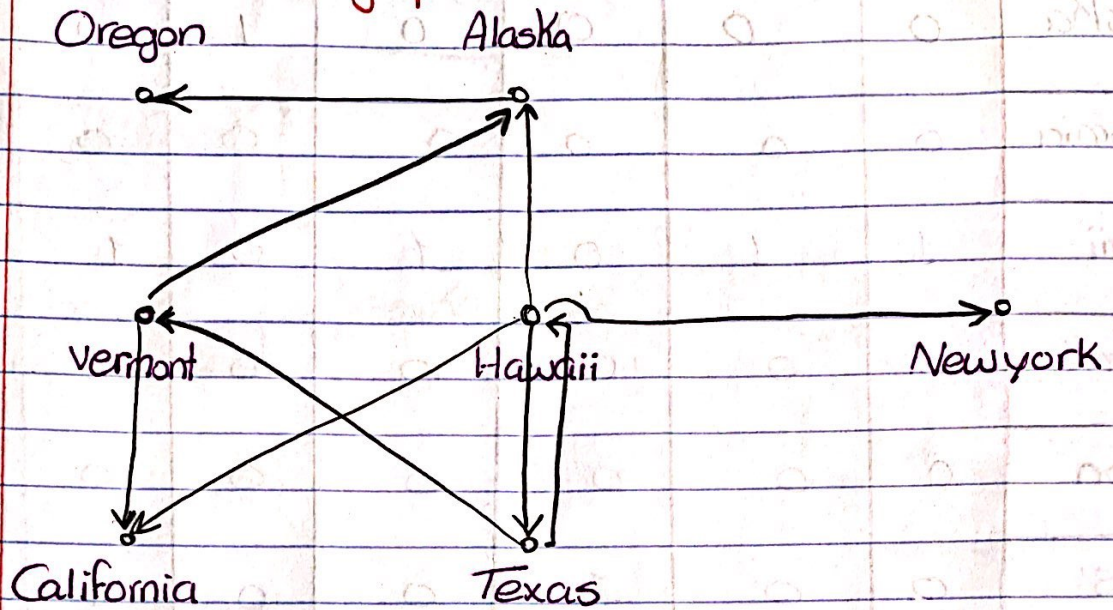 Oregon Alaska
Vermont Hawaii Newyork
California Texas